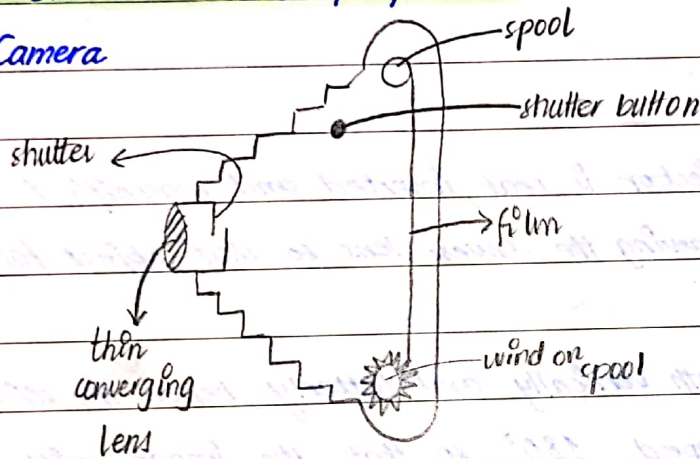 Camera
spool
shutter button
shutter
film
thin
converging
lens
wind on spool